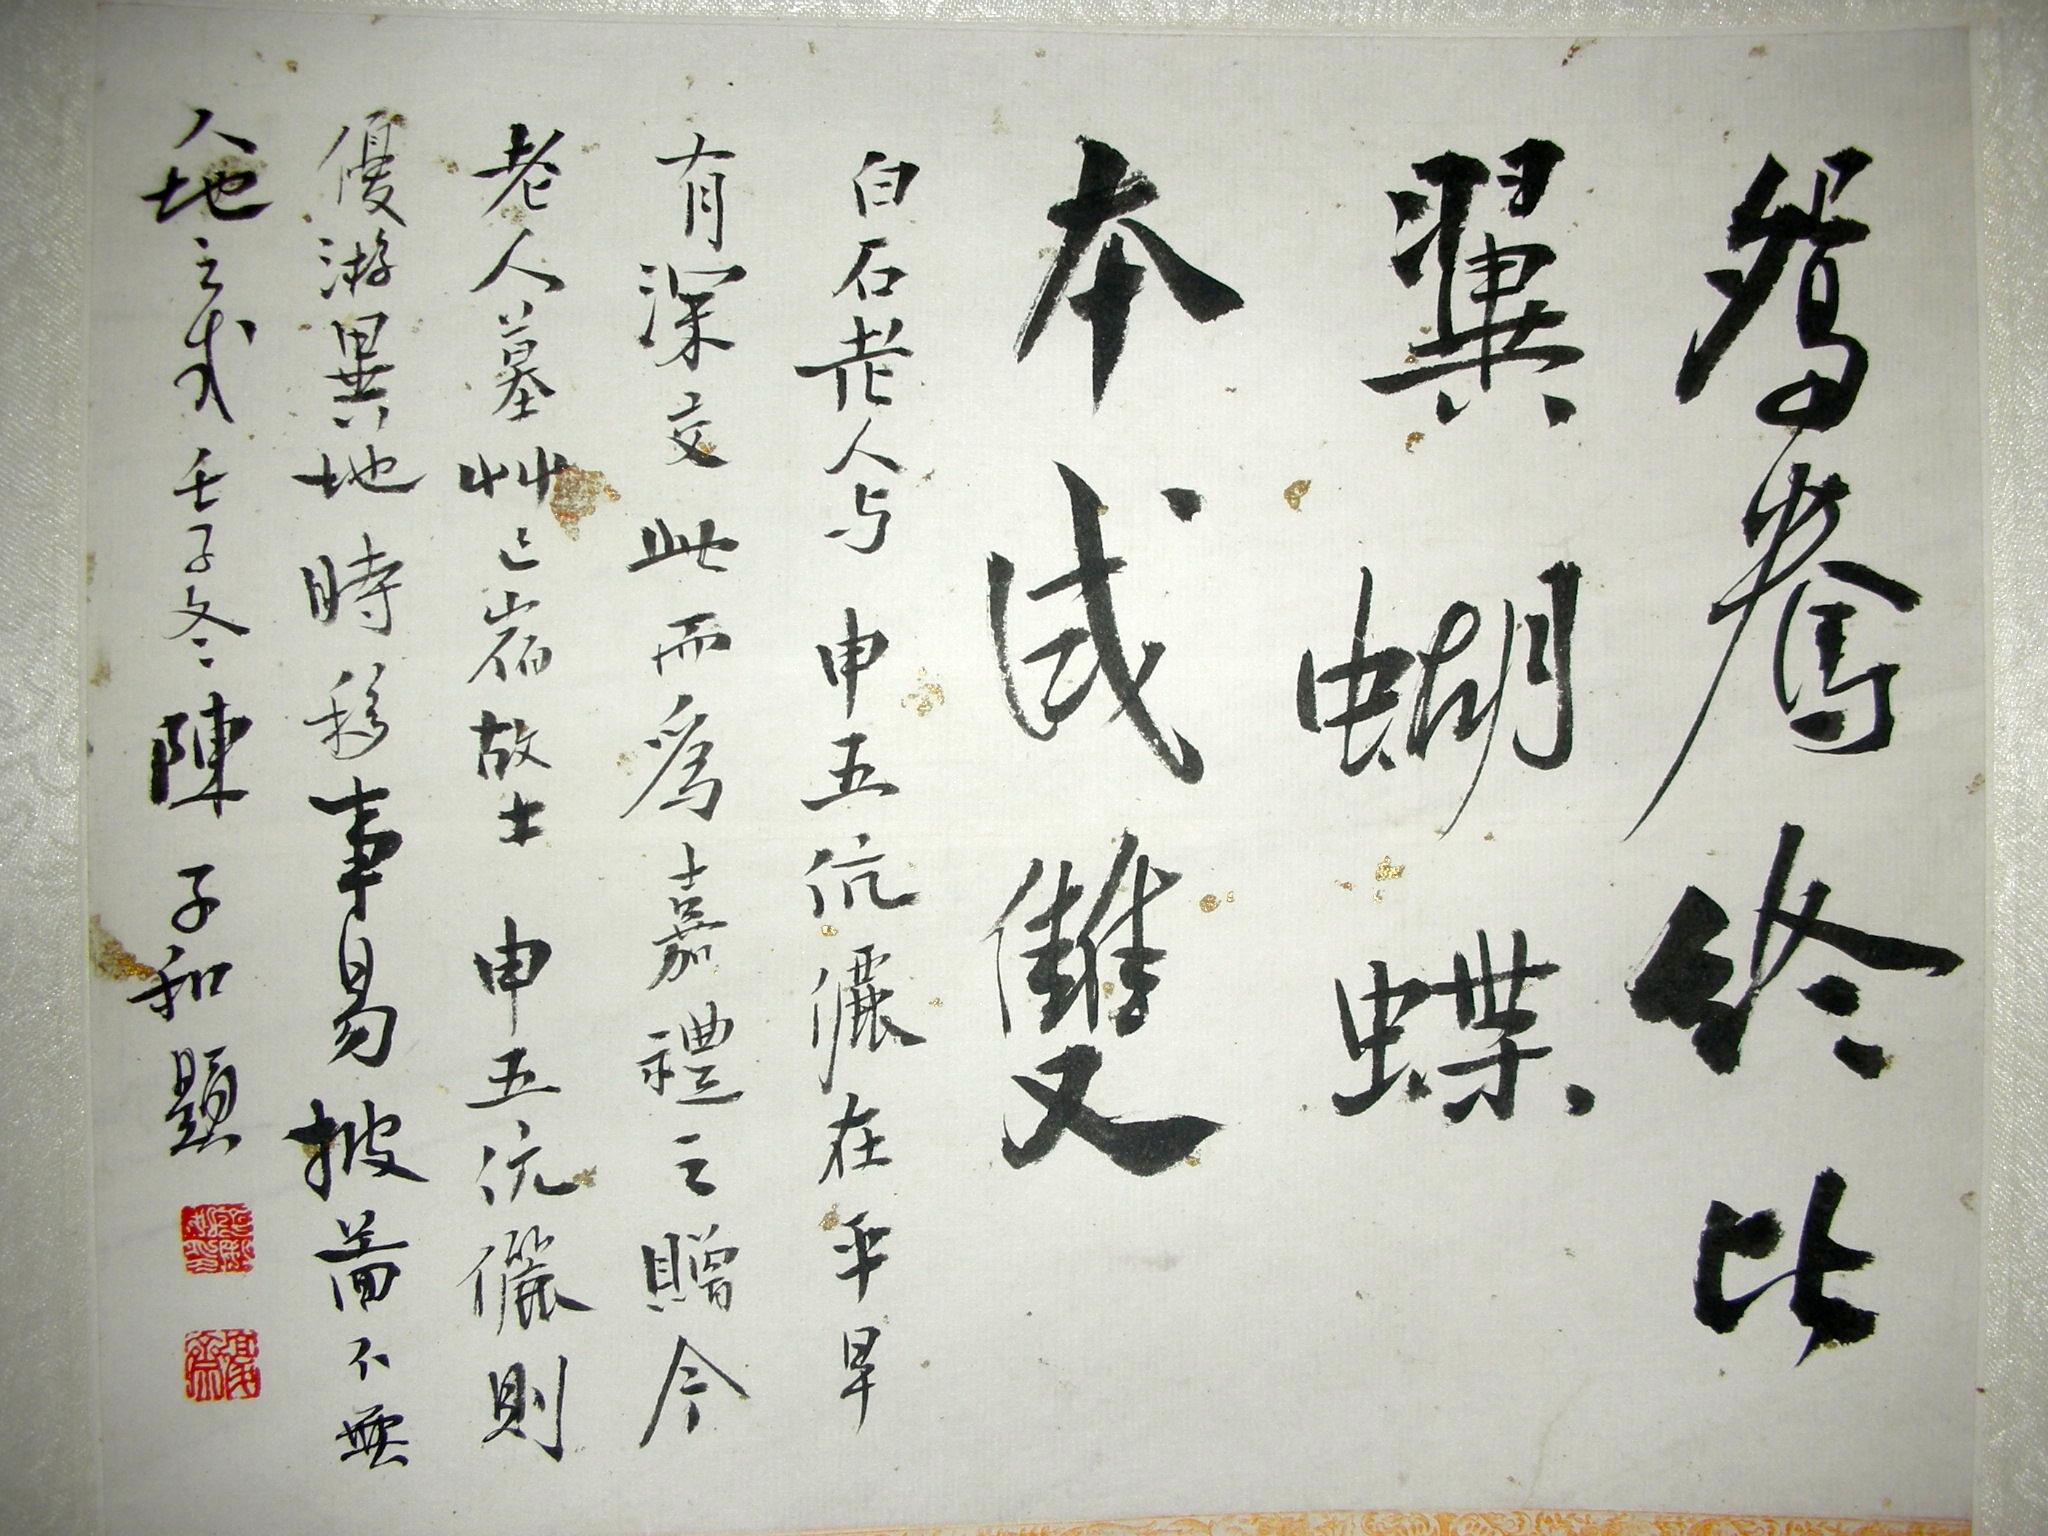 鴛鴦終比
翼蝴蝶
本成雙
白石老人与申五伉儷在平早
有深交此而爲嘉禮之贈今
老人墓艸已宿故土申五伉儷則
優游異地時移事易披啚不無
人地之感壬子冬陳子和題